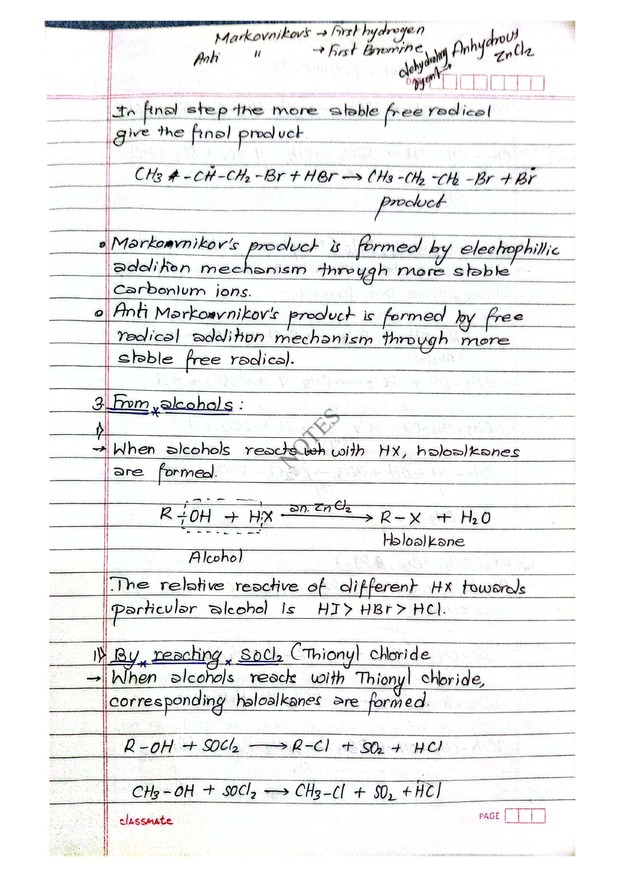 Markovnikov's → First hydrogen
Anti " → First Bromine
dehydrating agent Anhydrous ZnCl2
In final step the more stable free radical
give the final product
CH3 - ĊH - CH2 - Br + HBr → CH3 - CH2 - CH2 - Br + Br•
product
• Markovnikov's product is formed by electrophillic
addition mechanism through more stable
carbonium ions.
• Anti Markovnikov's product is formed by free
radical addition mechanism through more
stable free radical.
3. From alcohols :
i)
→ When alcohols reacts with HX, haloalkanes
are formed.
R - OH + HX an. ZnCl2 → R - X + H2O
Haloalkane
Alcohol
NOTES
The relative reactive of different HX towards
particular alcohol is HI > HBr > HCl.
ii) By reaching SOCl2 (Thionyl chloride
→ When alcohols reacts with Thionyl chloride,
corresponding haloalkanes are formed.
R - OH + SOCl2 → R - Cl + SO2 + HCl
CH3 - OH + SOCl2 → CH3 - Cl + SO2 + HCl
classmate
PAGE